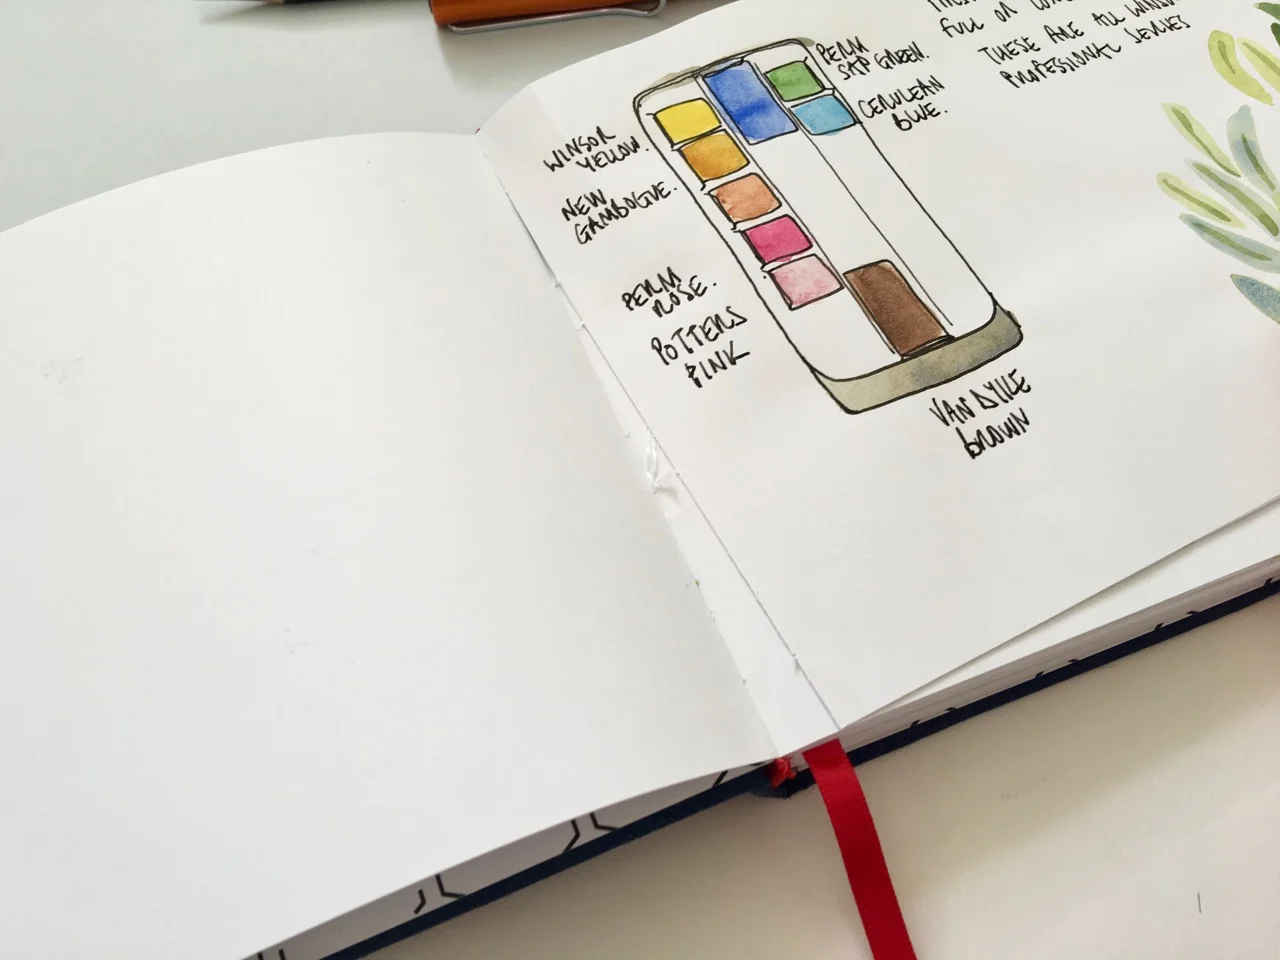 FULL OR
THESE ARE ALL WINSOR
PROFESSIONAL SERIES
PERM
SAP GREEN.
CERULEAN
BLUE.
WINSOR
YELLOW.
NEW
GAMBOGUE.
PERM
ROSE.
POTTERS
PINK
VAN DYKE
BROWN